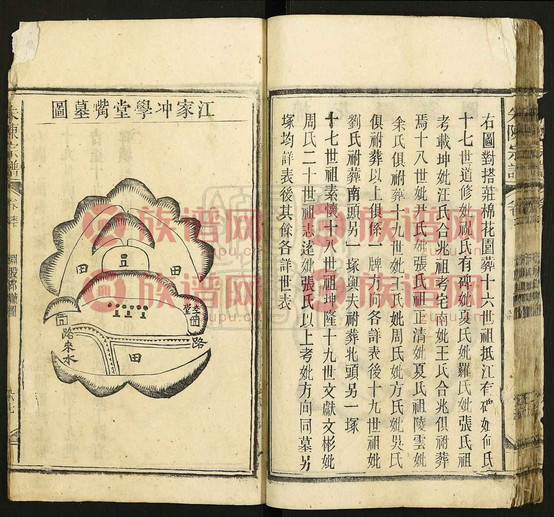 右圖對搭莊棉花園葬十六世祖抵江有碑妣何氏
十七世道修妣祝氏有碑妣夏氏妣羅氏妣張氏祖
考載坤妣汪氏合兆祖考宅南妣王氏合兆俱祔葬
焉十八世妣洪氏妣張氏祖正清妣夏氏祖陵雲妣
余氏俱祔葬十九世妣王氏妣周氏妣方氏妣吳氏
俱祔葬以上俱一牌方向各詳表後十九世祖妣
劉氏祔葬南頭另一塚與夫祔葬北頭另一塚
十七世祖素懷十八世祖坤隆十九世文獻文彬妣
周氏二十世祖志達妣張氏以上考妣方向同墓另
塚均詳表後其餘各詳世表
江家冲學堂嘴墓圖
田
田
田
路
路
來水
宗譜
族谱网
zupu.cn